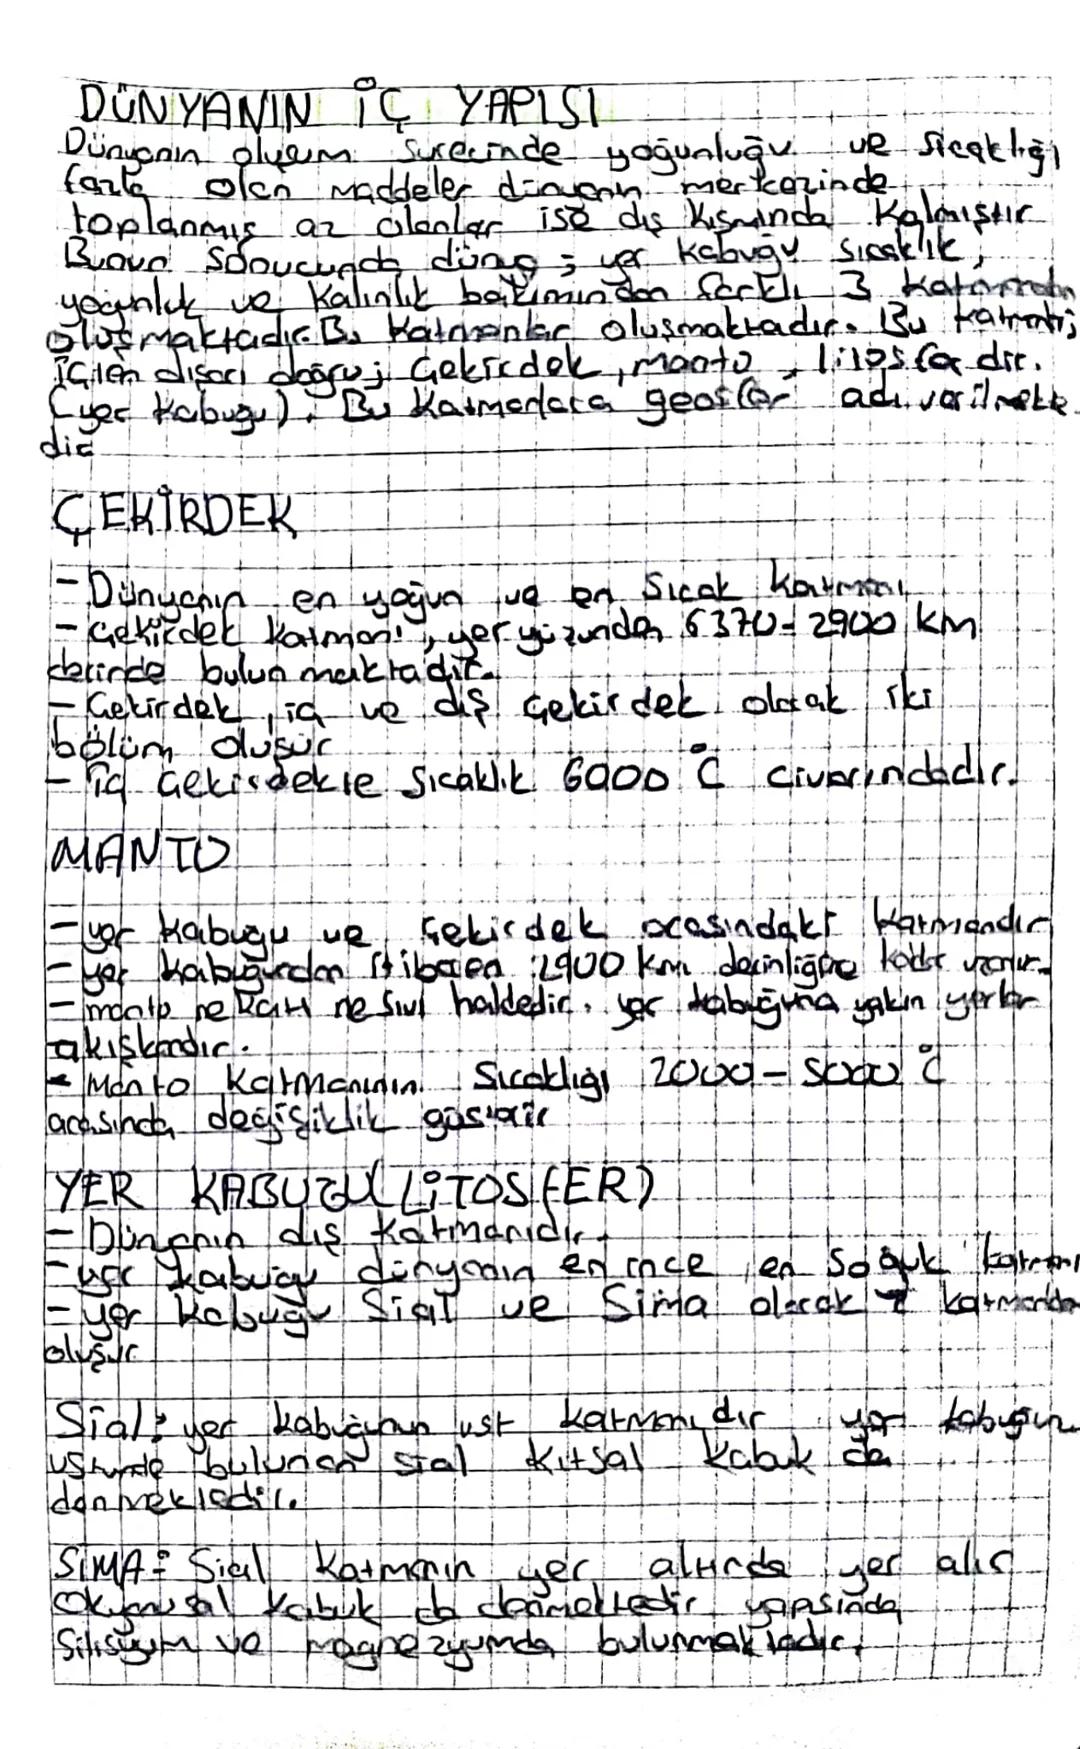 DÜNYANIN İÇ YAPISI
Dünyanın oluşum sürecinde yoğunluğu ve sıcaklığı
fazla olan maddeler dünyanın merkezinde
toplanmış az olanlar ise dış kısmında kalmıştır
Bunun sonucunda dünya ; yer kabuğu sıcaklık,
yoğunluk ve kalınlık bakımından farklı 3 katmandan
oluşmaktadır. Bu katmanlar oluşmaktadır. Bu
içten dışarı doğru; çekirdek, manto, litosfer dir.
(yer kabuğu). Bu katmanlara geosfer adı verilmekte
dir
ÇEKİRDEK
- Dünyanın en yoğun ve en sıcak katmanı
- Çekirdek katmanı, yer yüzünden 6370-2900 km
derinde bulunmaktadır.
- Çekirdek, iç ve dış çekirdek olarak iki
bölüm oluşur
- iç çekirdekte sıcaklık 6000 °C civarındadır.
MANTO
- yer kabuğu ve çekirdek arasındaki katmandır
- yer kabuğundan itibaren 2900 km derinliğine kadar uzanır.
- manto ne katı ne sıvı haldedir. yer kabuğuna yakın yerler
akışkandır.
- Manto katmanının sıcaklığı 2000-5000 °C
arasında değişiklik gösterir
YER KABUĞU (LİTOSFER)
- Dünyanın dış katmanıdır.
- yer kabuğu dünyanın en ince, en soğuk katmanı
- yer kabuğu Sial ve Sima olarak 2 katmandan
oluşur
Sial: yer kabuğunun üst katmanıdır yer kabuğun
üstünde bulunan sial kıtsal kabuk da
denmektedir.
SİMA: Sial katmanın yer altında yer alır
Okyanusal kabuk da denmektedir yapısında
Silisyum ve magnezyumda bulunmaktadır.